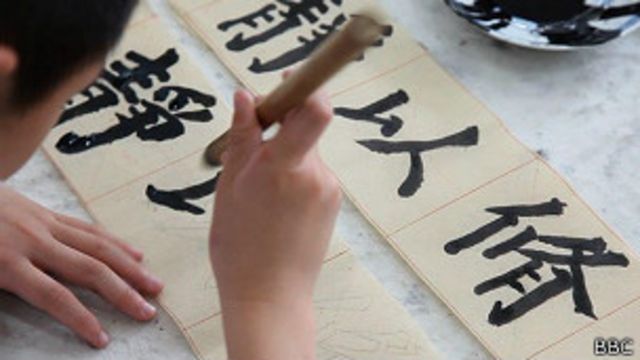 靜以修
靜
BBC